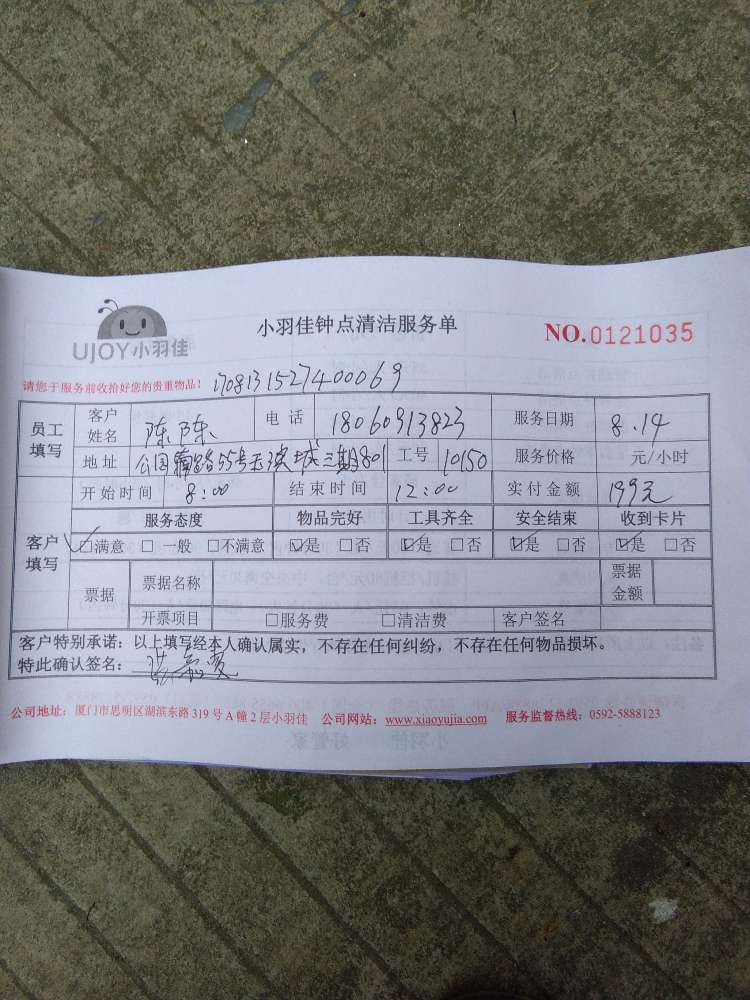 UJOY小羽佳
小羽佳钟点清洁服务单
NO.0121035
请您于服务前收拾好您的贵重物品！ 170813152740069
员工填写 客户姓名 陈陈 电话 18060913823 服务日期 8.14
地址 公园南路55号 城三期801 工号 10150 服务价格 元/小时
客户填写 开始时间 8:00 结束时间 12:00 实付金额 199元
服务态度 物品完好 工具齐全 安全结束 收到卡片
☑满意 □一般 □不满意 ☑是 □否 ☑是 □否 ☑是 □否 ☑是 □否
票据 票据名称 票据金额
开票项目 □服务费 □清洁费 客户签名
客户特别承诺：以上填写经本人确认属实，不存在任何纠纷，不存在任何物品损坏。
特此确认签名：
公司地址：厦门市思明区湖滨东路 319 号 A 幢 2 层小羽佳 公司网站：www.xiaoyujia.com 服务监督热线：0592-5888123